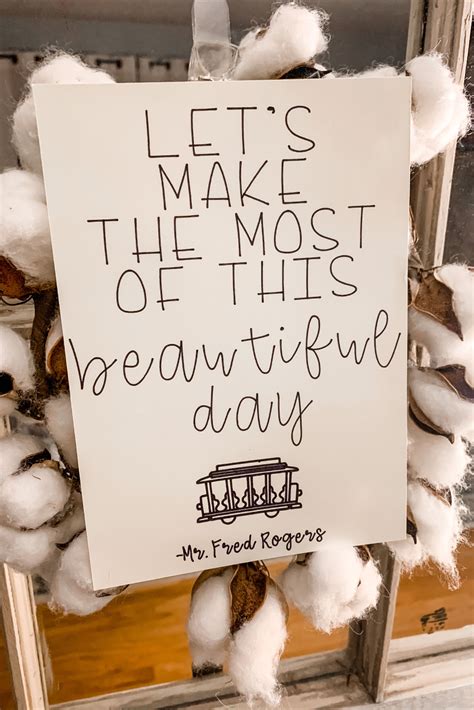 LET'S
MAKE
THE MOST
OF THIS
beautiful
day
-Mr. Fred Rogers